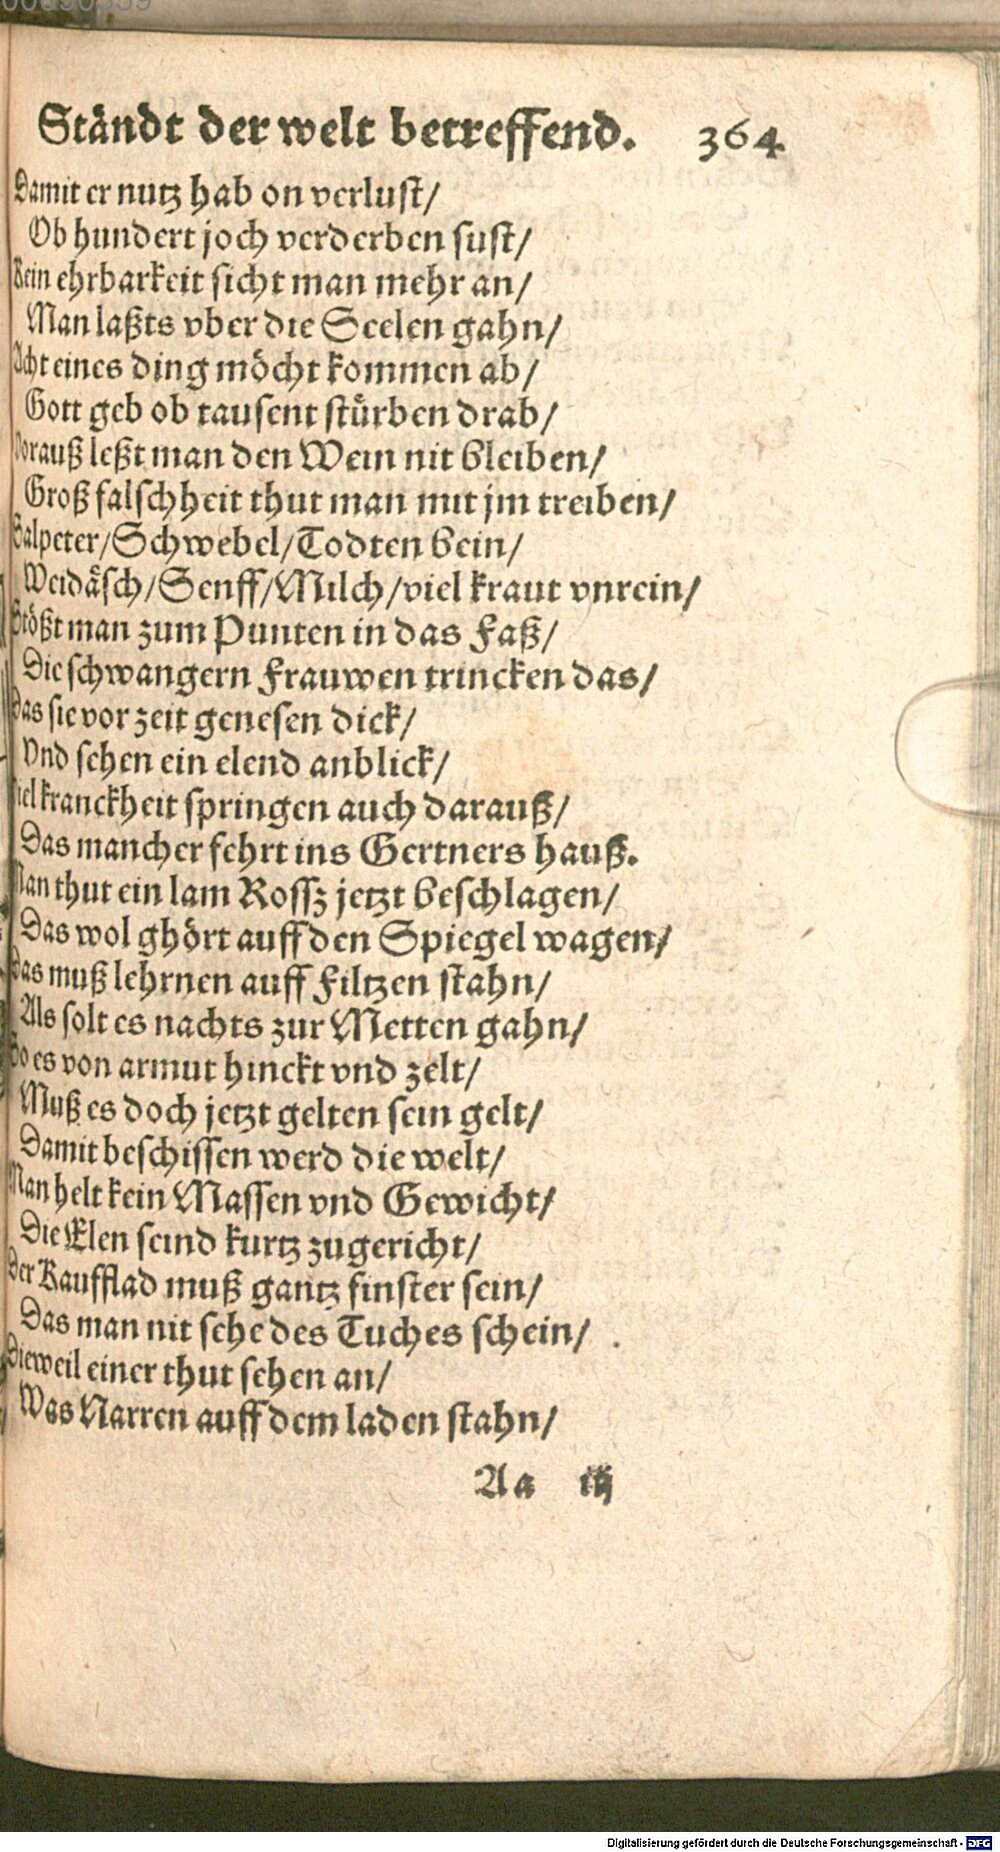 Ständt der welt betreffend. 364
Damit er nutz hab on verlust/
Ob hundert joch verderben sust/
Kein ehrbarkeit sicht man mehr an/
Man laßts vber die Seelen gahn/
Acht eines ding möcht kommen ab/
Gott geb ob tausent stürben drab/
Vorauß leßt man den Wein nit bleiben/
Groß falschheit thut man mit jm treiben/
Salpeter/Schwebel/Todten bein/
Weidäsch/Senff/Milch/viel kraut vnrein/
Stößt man zum Punten in das Faß/
Die schwangern Frauwen trincken das/
Das sie vor zeit genesen dick/
Vnd sehen ein elend anblick/
Viel kranckheit springen auch darauß/
Das mancher fehrt ins Gertners hauß.
Man thut ein lam Rossz jetzt beschlagen/
Das wol ghört auff den Spiegel wagen/
Das muß lehrnen auff Filtzen stahn/
Als solt es nachts zur Metten gahn/
So es von armut hinckt vnd zelt/
Muß es doch jetzt gelten sein gelt/
Damit beschissen werd die welt/
Man helt kein Massen vnd Gewicht/
Die Elen seind kurtz zugericht/
Der Kaufflad muß gantz finster sein/
Das man nit sehe des Tuches schein/
Dieweil einer thut sehen an/
Was Narren auff dem laden stahn/
Aa iij
Digitalisierung gefördert durch die Deutsche Forschungsgemeinschaft - DFG